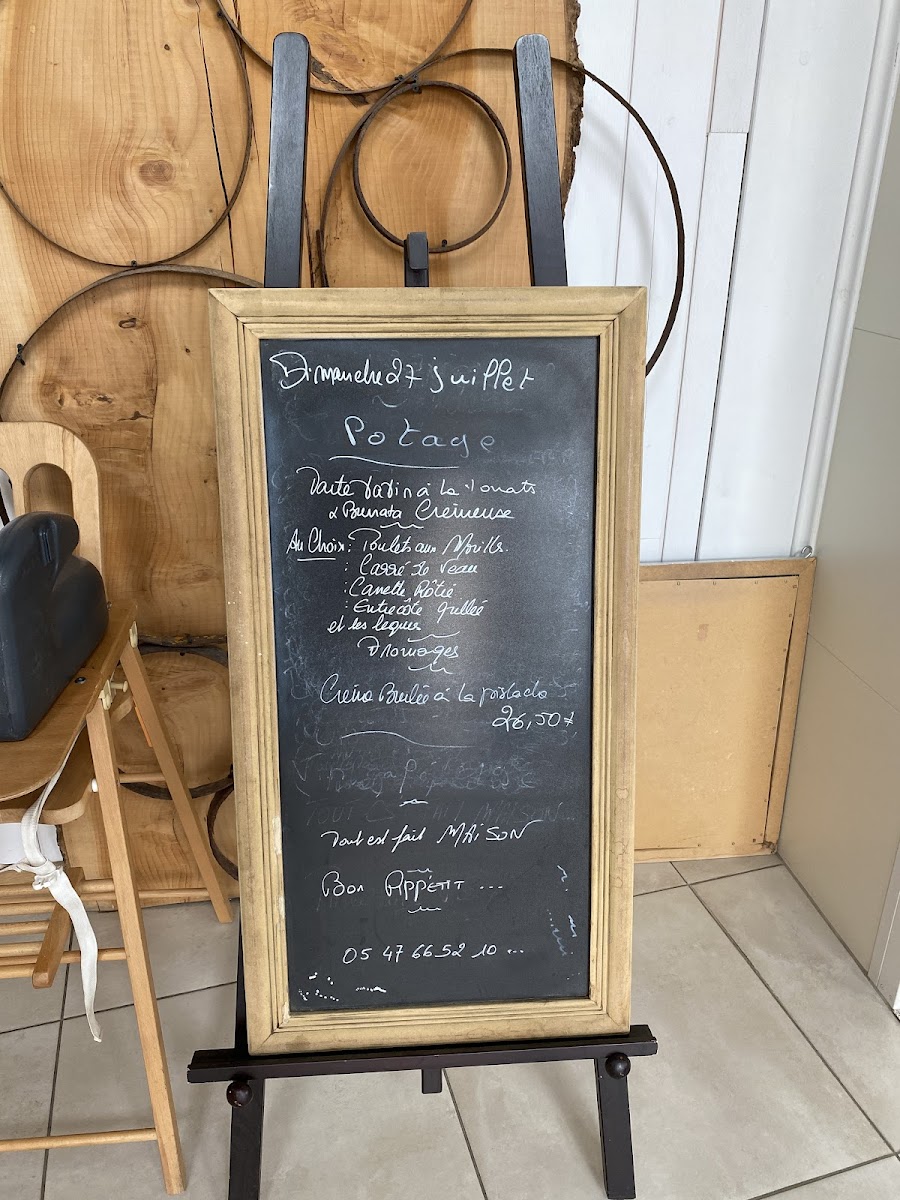 Dimanche 27 juillet
Potage
Tarte tatin à la Tomate
& Burrata Crémeuse
Au Choix: Poulet aux Morilles
: Carré de Veau
: Canette Rôtie
: Entrecôte grillée
et ses legumes
Fromages
Crème Brulée à la pistache
26,50€
Tout est fait MAISON
Bon APPÉTIT ...
05 47 66 52 10 ...